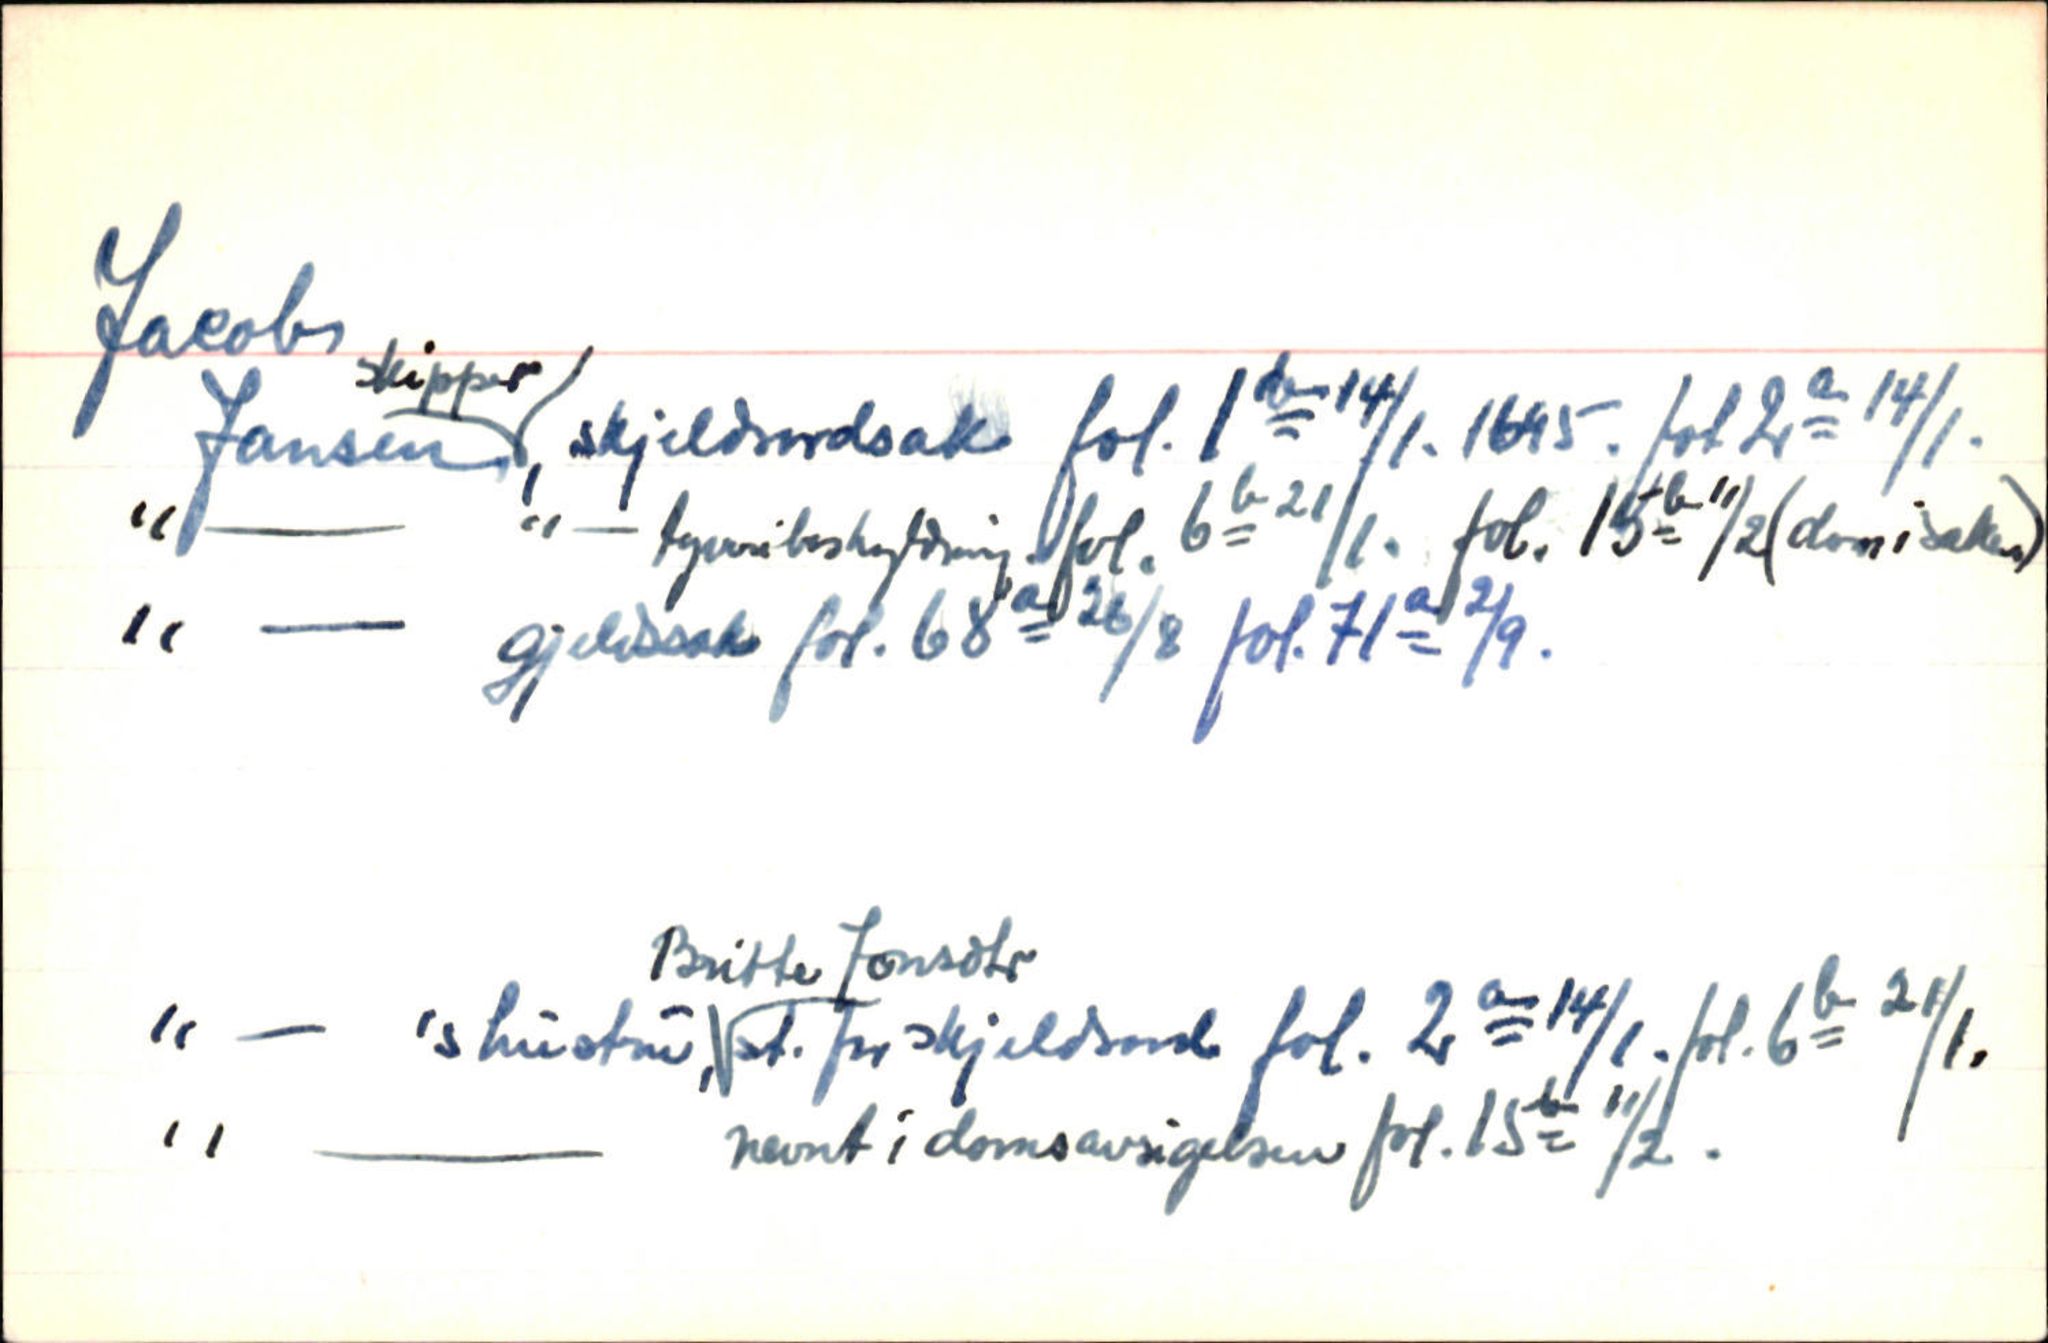 Jacob
skipper
Jansen, skjeldsordsak fol. 1 b 14/1. 1645. fol 2 a 14/1.
" — " — tyveribeskyldning. fol. 6 b 21/1. fol. 15 b 11/2 (dom i saken)
" — gjeldssak fol. 68 a 26/8 fol. 71 a 2/9.
Britte Jonsdtr
" — 's hustru, st. for skjeldsord fol. 2 a 14/1. fol. 6 b 21/1.
" — nevnt i domsavsigelsen fol. 15 b 11/2.